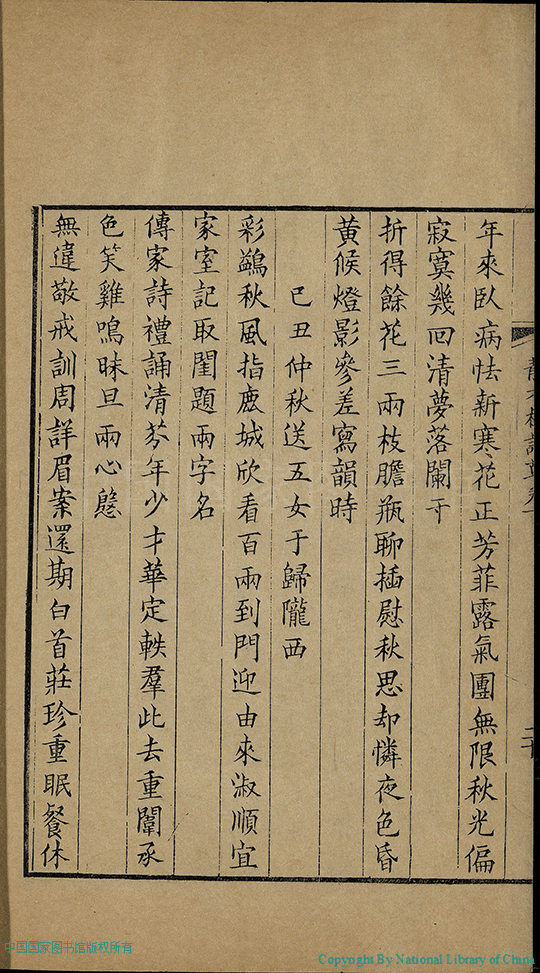 年來臥病怯新寒花正芳菲露氣團無限秋光偏
寂寞幾回清夢落闌干
折得餘花三兩枝膽瓶聊插慰秋思却憐夜色昏
黃候燈影參差寫韻時
己丑仲秋送五女于歸隴西
彩鷁秋風指鹿城欣看百兩到門迎由來淑順宜
家室記取閨題兩字名
傳家詩禮誦清芬年少才華定軼羣此去重闈承
色笑雞鳴昧旦兩心慇
無違敬戒訓周詳眉案還期白首莊珍重眠餐休
中国国家图书馆版权所有
Copyright By National Library of China